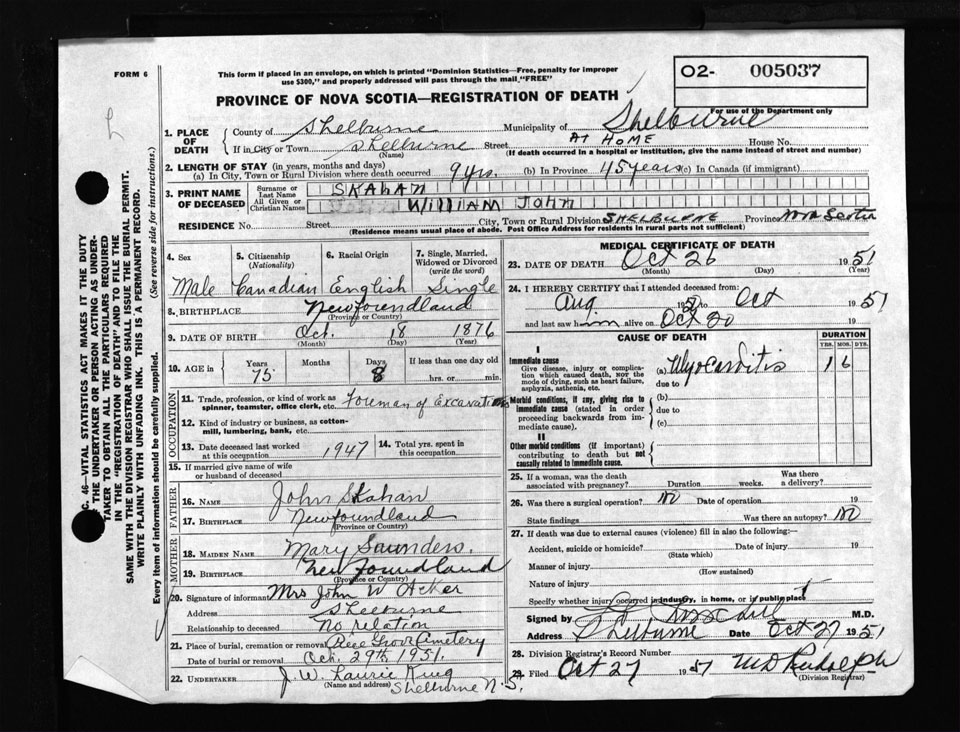 FORM 6
This form if placed in an envelope, on which is printed "Dominion Statistics—Free, penalty for improper
use $300," and properly addressed will pass through the mail, "FREE"
PROVINCE OF NOVA SCOTIA—REGISTRATION OF DEATH
O2- 005037
For use of the Department only
1. PLACE OF DEATH County of Shelburne Municipality of Shelburne
If in City or Town Shelburne Street AT HOME House No.
(Name) (If death occurred in a hospital or institution, give the name instead of street and number)
2. LENGTH OF STAY (in years, months and days)
(a) In City, Town or Rural Division where death occurred 9 yrs. (b) In Province 45 years (c) In Canada (if immigrant)
3. PRINT NAME OF DECEASED Surname or Last Name SKAHAN
All Given or Christian Names WILLIAM JOHN
RESIDENCE No. Street City, Town or Rural Division SHELBURNE Province Nova Scotia
(Residence means usual place of abode. Post Office Address for residents in rural parts not sufficient)
4. Sex 5. Citizenship (Nationality) 6. Racial Origin 7. Single, Married, Widowed or Divorced (write the word)
Male Canadian English Single
8. BIRTHPLACE Newfoundland
(Province or Country)
9. DATE OF BIRTH Oct. 18 1876
(Month) (Day) (Year)
10. AGE in Years Months Days If less than one day old
75 8 hrs. or min.
OCCUPATION
11. Trade, profession or kind of work as spinner, teamster, office clerk, etc. Foreman of Excavations
12. Kind of industry or business, as cotton-mill, lumbering, bank, etc.
13. Date deceased last worked at this occupation 1947 14. Total yrs. spent in this occupation
15. If married give name of wife or husband of deceased
FATHER
16. NAME John Skahan
17. BIRTHPLACE Newfoundland
(Province or Country)
MOTHER
18. MAIDEN NAME Mary Saunders.
19. BIRTHPLACE Newfoundland
(Province or Country)
20. Signature of informant Mrs John W Acker
Address Shelburne
Relationship to deceased No relation
21. Place of burial, cremation or removal Grove Cemetery
Date of burial or removal Oct. 29th, 1951.
22. UNDERTAKER J. W. Laurie King
(Name and address) Shelburne N.S.
MEDICAL CERTIFICATE OF DEATH
23. DATE OF DEATH Oct 26 1951
(Month) (Day) (Year)
24. I HEREBY CERTIFY that I attended deceased from:
Aug 1951 to Oct 1951
and last saw him alive on Oct 20 19
CAUSE OF DEATH DURATION
YRS. MOS. DYS.
I
Immediate cause (a) Myocarditis 1 6
Give disease, injury or complication which caused death, NOT the mode of dying, such as heart failure, asphyxia, asthenia, etc. due to
Morbid conditions, if any, giving rise to immediate cause (stated in order proceeding backwards from immediate cause). (b)
due to
(c)
II
Other morbid conditions (if important) contributing to death but not causally related to immediate cause.
25. If a woman, was the death associated with pregnancy? Duration weeks. Was there a delivery?
26. Was there a surgical operation? No Date of operation 19
State findings Was there an autopsy? No
27. If death was due to external causes (violence) fill in also the following:
Accident, suicide or homicide? Date of injury 19
(State which)
Manner of injury
(How sustained)
Nature of injury
Specify whether injury occurred in industry, in home, or in public place
Signed by M.D.
Address Shelburne Date Oct 27 1951
28. Division Registrar's Record Number
29. Filed Oct 27 1951 M D Rudolph
(Division Registrar)
C. 46—VITAL STATISTICS ACT MAKES IT THE DUTY
THE UNDERTAKER OR PERSON ACTING AS UNDER-
TAKER TO OBTAIN ALL THE PARTICULARS REQUIRED
IN THE "REGISTRATION OF DEATH" AND TO FILE THE
SAME WITH THE DIVISION REGISTRAR WHO SHALL ISSUE THE BURIAL PERMIT.
WRITE PLAINLY WITH UNFADING INK. THIS IS A PERMANENT RECORD.
Every item of information should be carefully supplied. (See reverse side for instructions.)